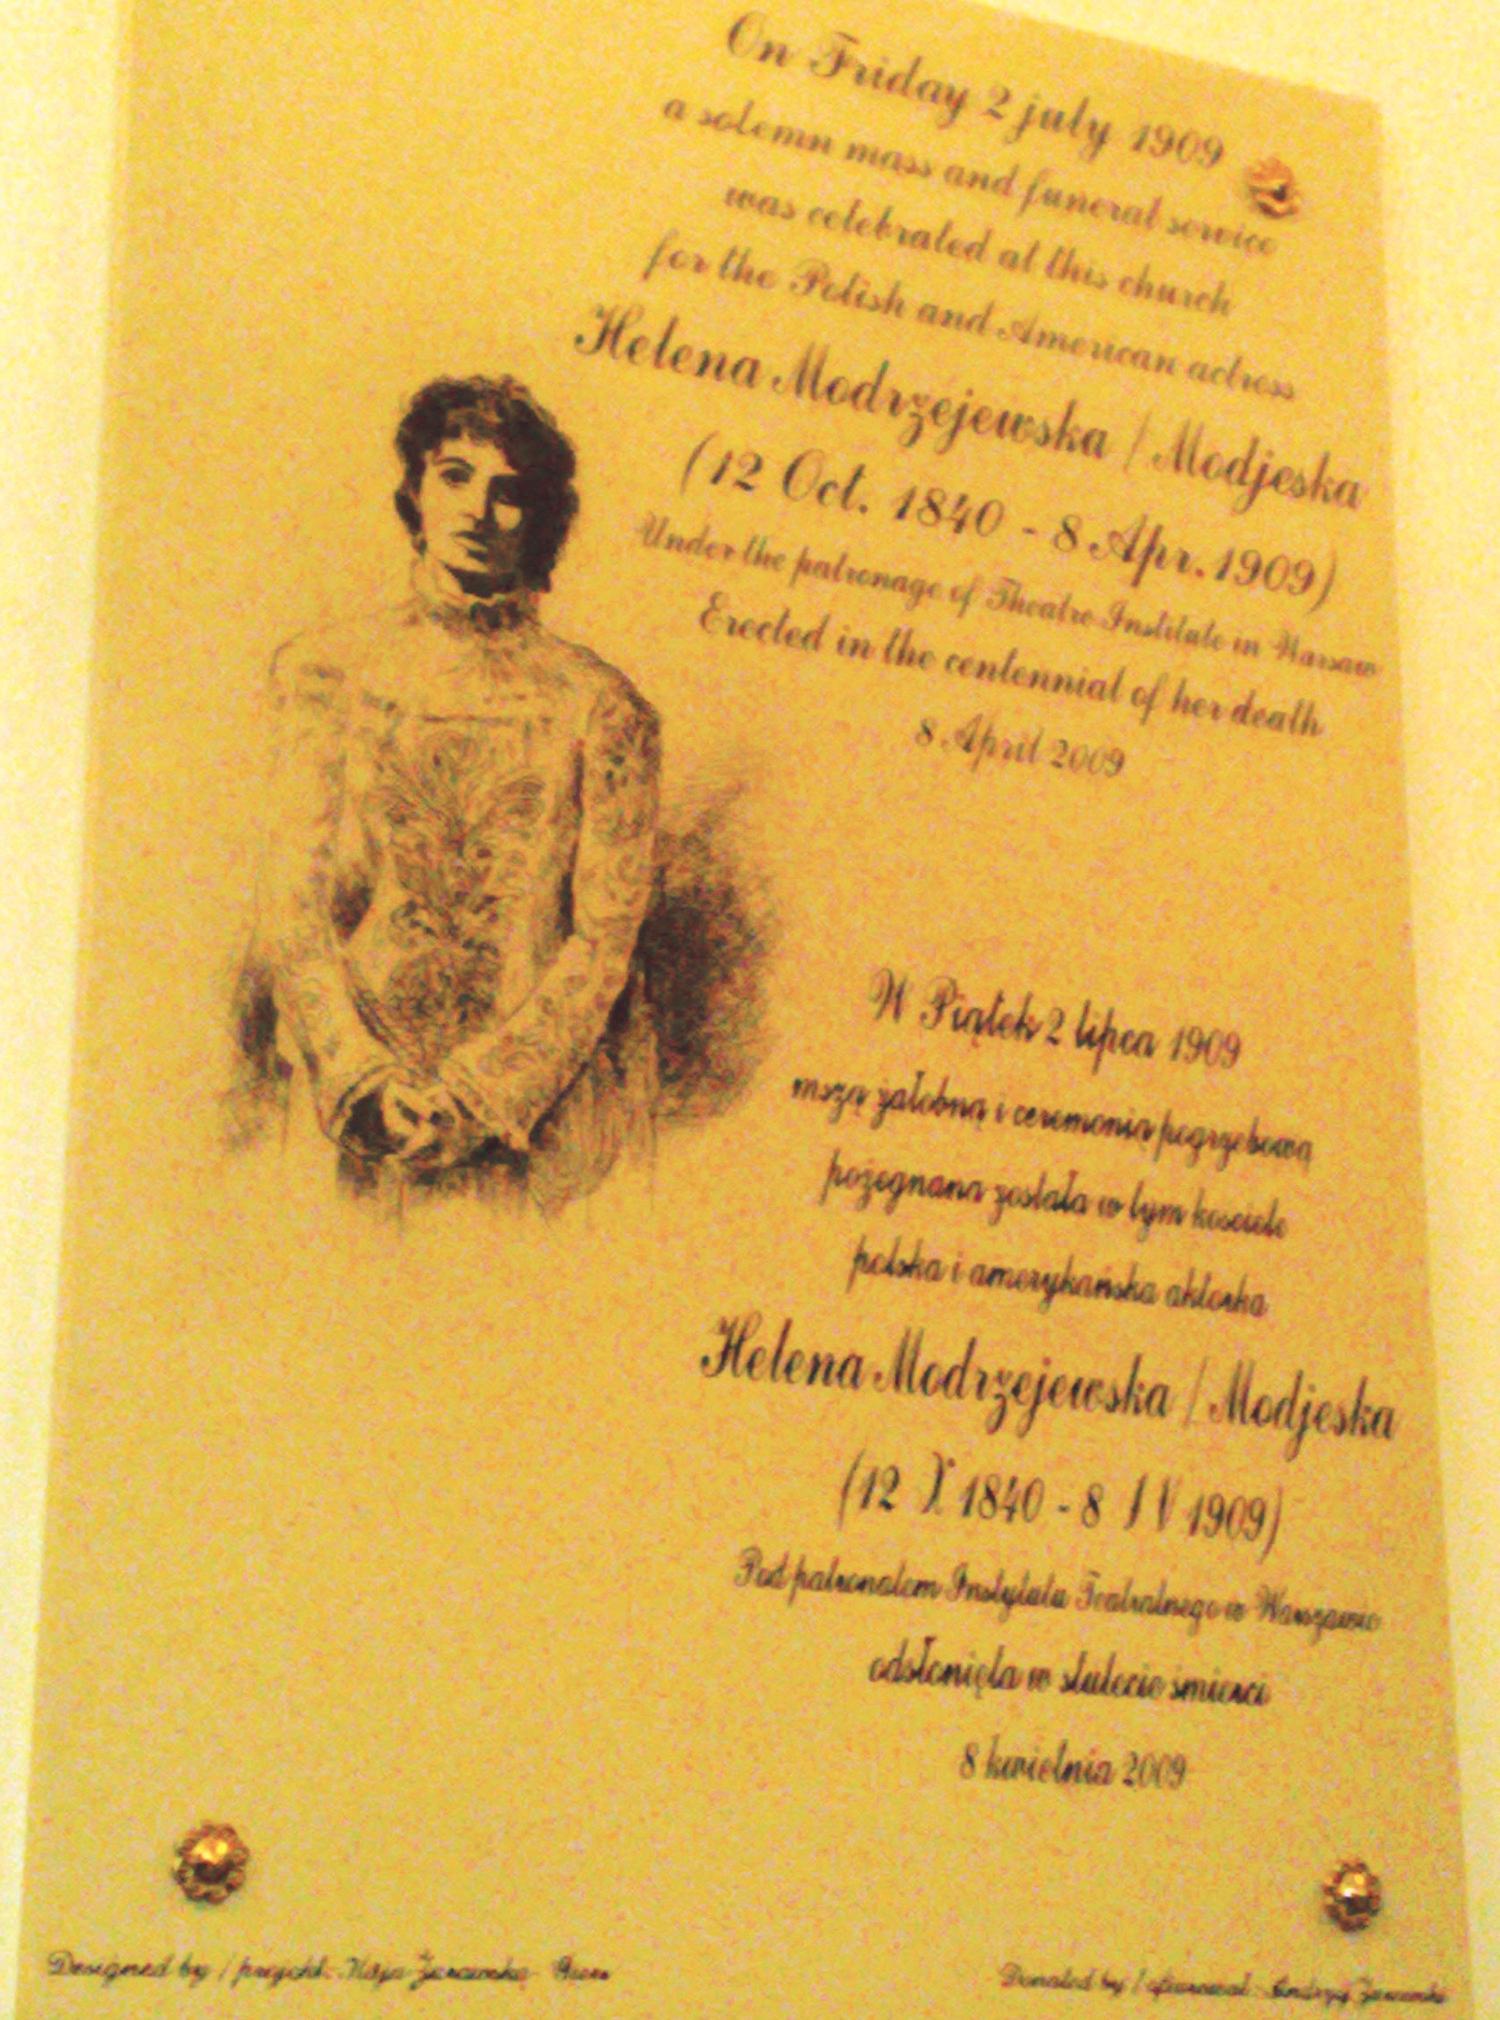 On Friday 2 july 1909
a solemn mass and funeral service
was celebrated at this church
for the Polish and American actress
Helena Modrzejewska / Modjeska
(12 Oct. 1840 - 8 Apr. 1909)
Under the patronage of Theatre Institute in Warsaw
Erected in the centennial of her death
8 April 2009
W Piątek 2 lipca 1909
mszą żałobną i ceremonią pogrzebową
pożegnana została w tym kościele
polska i amerykańska aktorka
Helena Modrzejewska / Modjeska
(12 X 1840 - 8 IV 1909)
Pod patronatem Instytutu Teatralnego w Warszawie
odsłonięta w stulecie śmierci
8 kwietnia 2009
Designed by / projekt:
Donated by / ofiarował: Andrzej